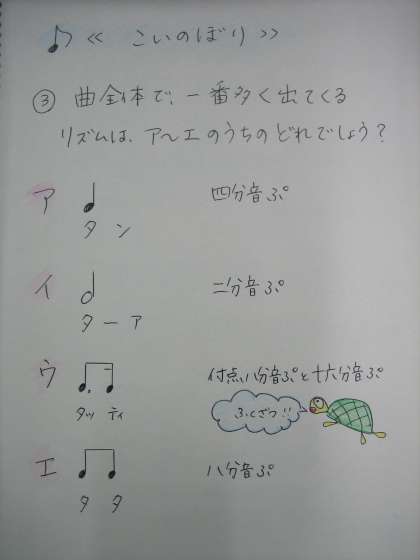 ♪ 《 こいのぼり 》
③ 曲全体で、一番多く出てくる
リズムは、ア〜エのうちのどれでしょう？
ア 四分音ぷ
タ ン
イ 二分音ぷ
ターア
ウ 付点八分音ぷと十六分音ぷ
タッ ティ
ふくざつ!!
エ 八分音ぷ
タ タ